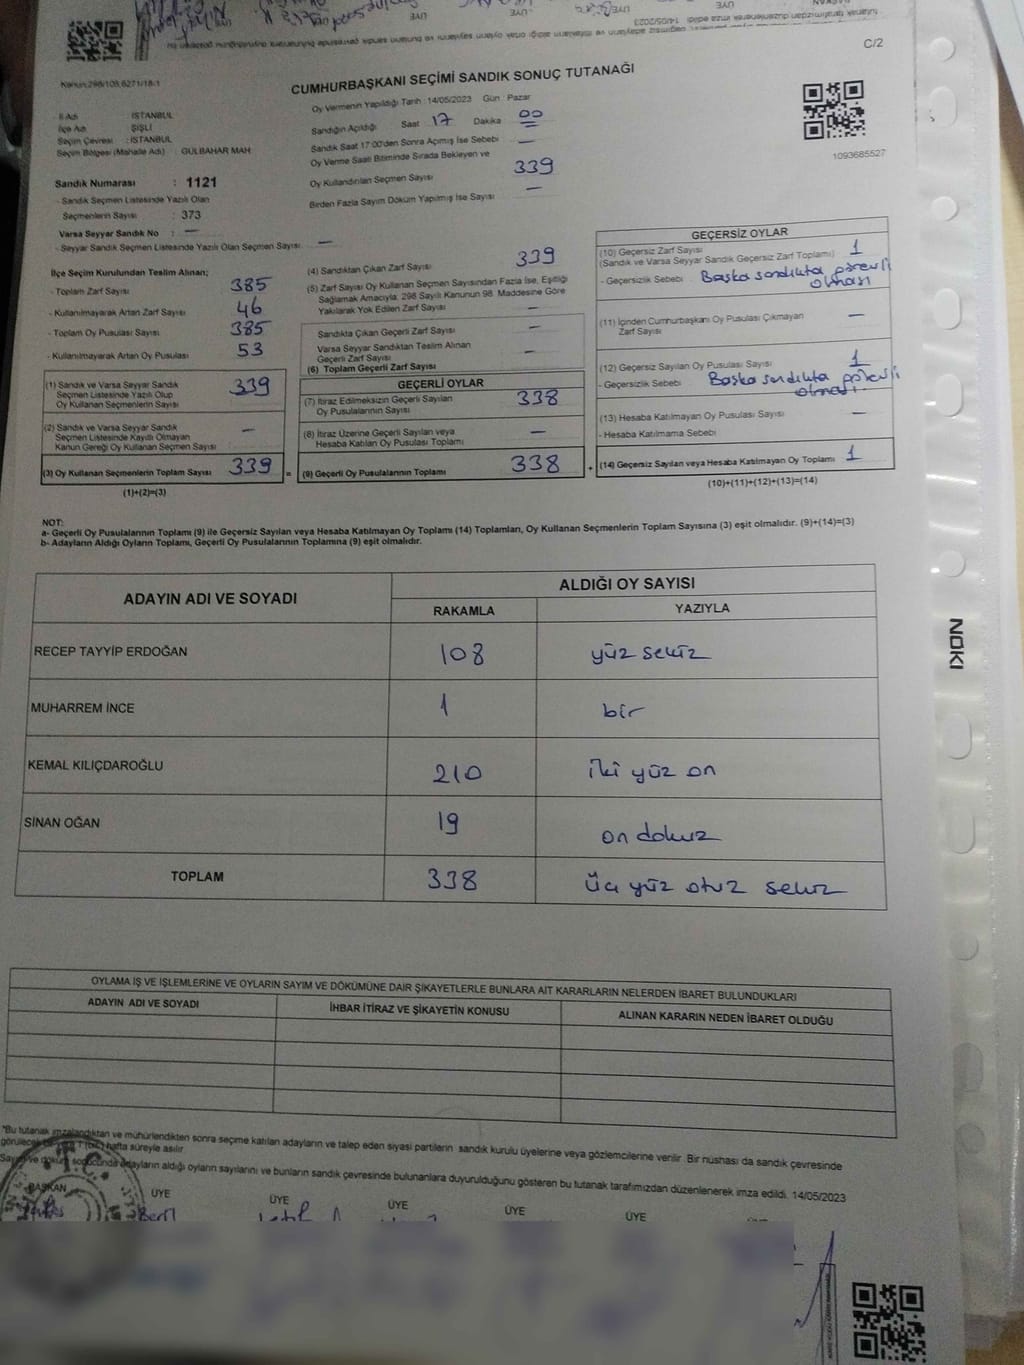 C/2
Kanun:298/103,6271/18/1
CUMHURBAŞKANI SEÇİMİ SANDIK SONUÇ TUTANAĞI
Oy Vermenin Yapıldığı Tarih : 14/05/2023 Gün : Pazar
İl Adı : İSTANBUL
İlçe Adı : ŞİŞLİ
Seçim Çevresi : İSTANBUL
Seçim Bölgesi (Mahalle Adı) : GÜLBAHAR MAH
Sandığın Açıldığı Saat 17 Dakika 00
Sandık Saat 17:00'den Sonra Açılmış İse Sebebi —
Oy Verme Saati Bitiminde Sırada Bekleyen ve
Oy Kullandırılan Seçmen Sayısı 339
Birden Fazla Sayım Döküm Yapılmış İse Sayısı —
1093685527
Sandık Numarası : 1121
- Sandık Seçmen Listesinde Yazılı Olan
Seçmenlerin Sayısı : 373
Varsa Seyyar Sandık No : —
- Seyyar Sandık Seçmen Listesinde Yazılı Olan Seçmen Sayısı : —
İlçe Seçim Kurulundan Teslim Alınan;
- Toplam Zarf Sayısı 385
- Kullanılmayarak Artan Zarf Sayısı 46
- Toplam Oy Pusulası Sayısı 385
- Kullanılmayarak Artan Oy Pusulası 53
(1) Sandık ve Varsa Seyyar Sandık
Seçmen Listesinde Yazılı Olup
Oy Kullanan Seçmenlerin Sayısı 339
(2) Sandık ve Varsa Seyyar Sandık
Seçmen Listesinde Kayıtlı Olmayan
Kanun Gereği Oy Kullanan Seçmen Sayısı —
(3) Oy Kullanan Seçmenlerin Toplam Sayısı 339 =
(1)+(2)=(3)
(4) Sandıktan Çıkan Zarf Sayısı 339
(5) Zarf Sayısı Oy Kullanan Seçmen Sayısından Fazla İse, Eşitliği
Sağlamak Amacıyla, 298 Sayılı Kanunun 98. Maddesine Göre
Yakılarak Yok Edilen Zarf Sayısı —
Sandıkta Çıkan Geçerli Zarf Sayısı —
Varsa Seyyar Sandıktan Teslim Alınan
Geçerli Zarf Sayısı —
(6) Toplam Geçerli Zarf Sayısı
GEÇERLİ OYLAR
(7) İtiraz Edilmeksizin Geçerli Sayılan
Oy Pusulalarının Sayısı 338
(8) İtiraz Üzerine Geçerli Sayılan veya
Hesaba Katılan Oy Pusulası Toplamı —
(9) Geçerli Oy Pusulalarının Toplamı 338 +
GEÇERSİZ OYLAR
(10) Geçersiz Zarf Sayısı
(Sandık ve Varsa Seyyar Sandık Geçersiz Zarf Toplamı) 1
- Geçersizlik Sebebi Başka sandıkta görevli
olması
(11) İçinden Cumhurbaşkanı Oy Pusulası Çıkmayan
Zarf Sayısı —
(12) Geçersiz Sayılan Oy Pusulası Sayısı 1
- Geçersizlik Sebebi Başka sandıkta görevli
olması
(13) Hesaba Katılmayan Oy Pusulası Sayısı —
- Hesaba Katılmama Sebebi
(14) Geçersiz Sayılan veya Hesaba Katılmayan Oy Toplamı 1
(10)+(11)+(12)+(13)=(14)
NOT:
a- Geçerli Oy Pusulalarının Toplamı (9) ile Geçersiz Sayılan veya Hesaba Katılmayan Oy Toplamı (14) Toplamları, Oy Kullanan Seçmenlerin Toplam Sayısına (3) eşit olmalıdır. (9)+(14)=(3)
b- Adayların Aldığı Oyların Toplamı, Geçerli Oy Pusulalarının Toplamına (9) eşit olmalıdır.
ADAYIN ADI VE SOYADI ALDIĞI OY SAYISI
RAKAMLA YAZIYLA
RECEP TAYYİP ERDOĞAN 108 yüz sekiz
MUHARREM İNCE 1 bir
KEMAL KILIÇDAROĞLU 210 iki yüz on
SİNAN OĞAN 19 on dokuz
TOPLAM 338 üç yüz otuz sekiz
OYLAMA İŞ VE İŞLEMLERİNE VE OYLARIN SAYIM VE DÖKÜMÜNE DAİR ŞİKAYETLERLE BUNLARA AİT KARARLARIN NELERDEN İBARET BULUNDUKLARI
ADAYIN ADI VE SOYADI İHBAR İTİRAZ VE ŞİKAYETİN KONUSU ALINAN KARARIN NEDEN İBARET OLDUĞU
*Bu tutanak imzalandıktan ve mühürlendikten sonra seçime katılan adayların ve talep eden siyasi partilerin sandık kurulu üyelerine veya gözlemcilerine verilir. Bir nüshası da sandık çevresinde
görülecek hafta süreyle asılır.
Sayım ve döküm sonucunda adayların aldığı oyların sayılarını ve bunların sandık çevresinde bulunanlara duyurulduğunu gösteren bu tutanak tarafımızdan düzenlenerek imza edildi. 14/05/2023
BAŞKAN ÜYE ÜYE ÜYE ÜYE ÜYE
T.C.
NOKI